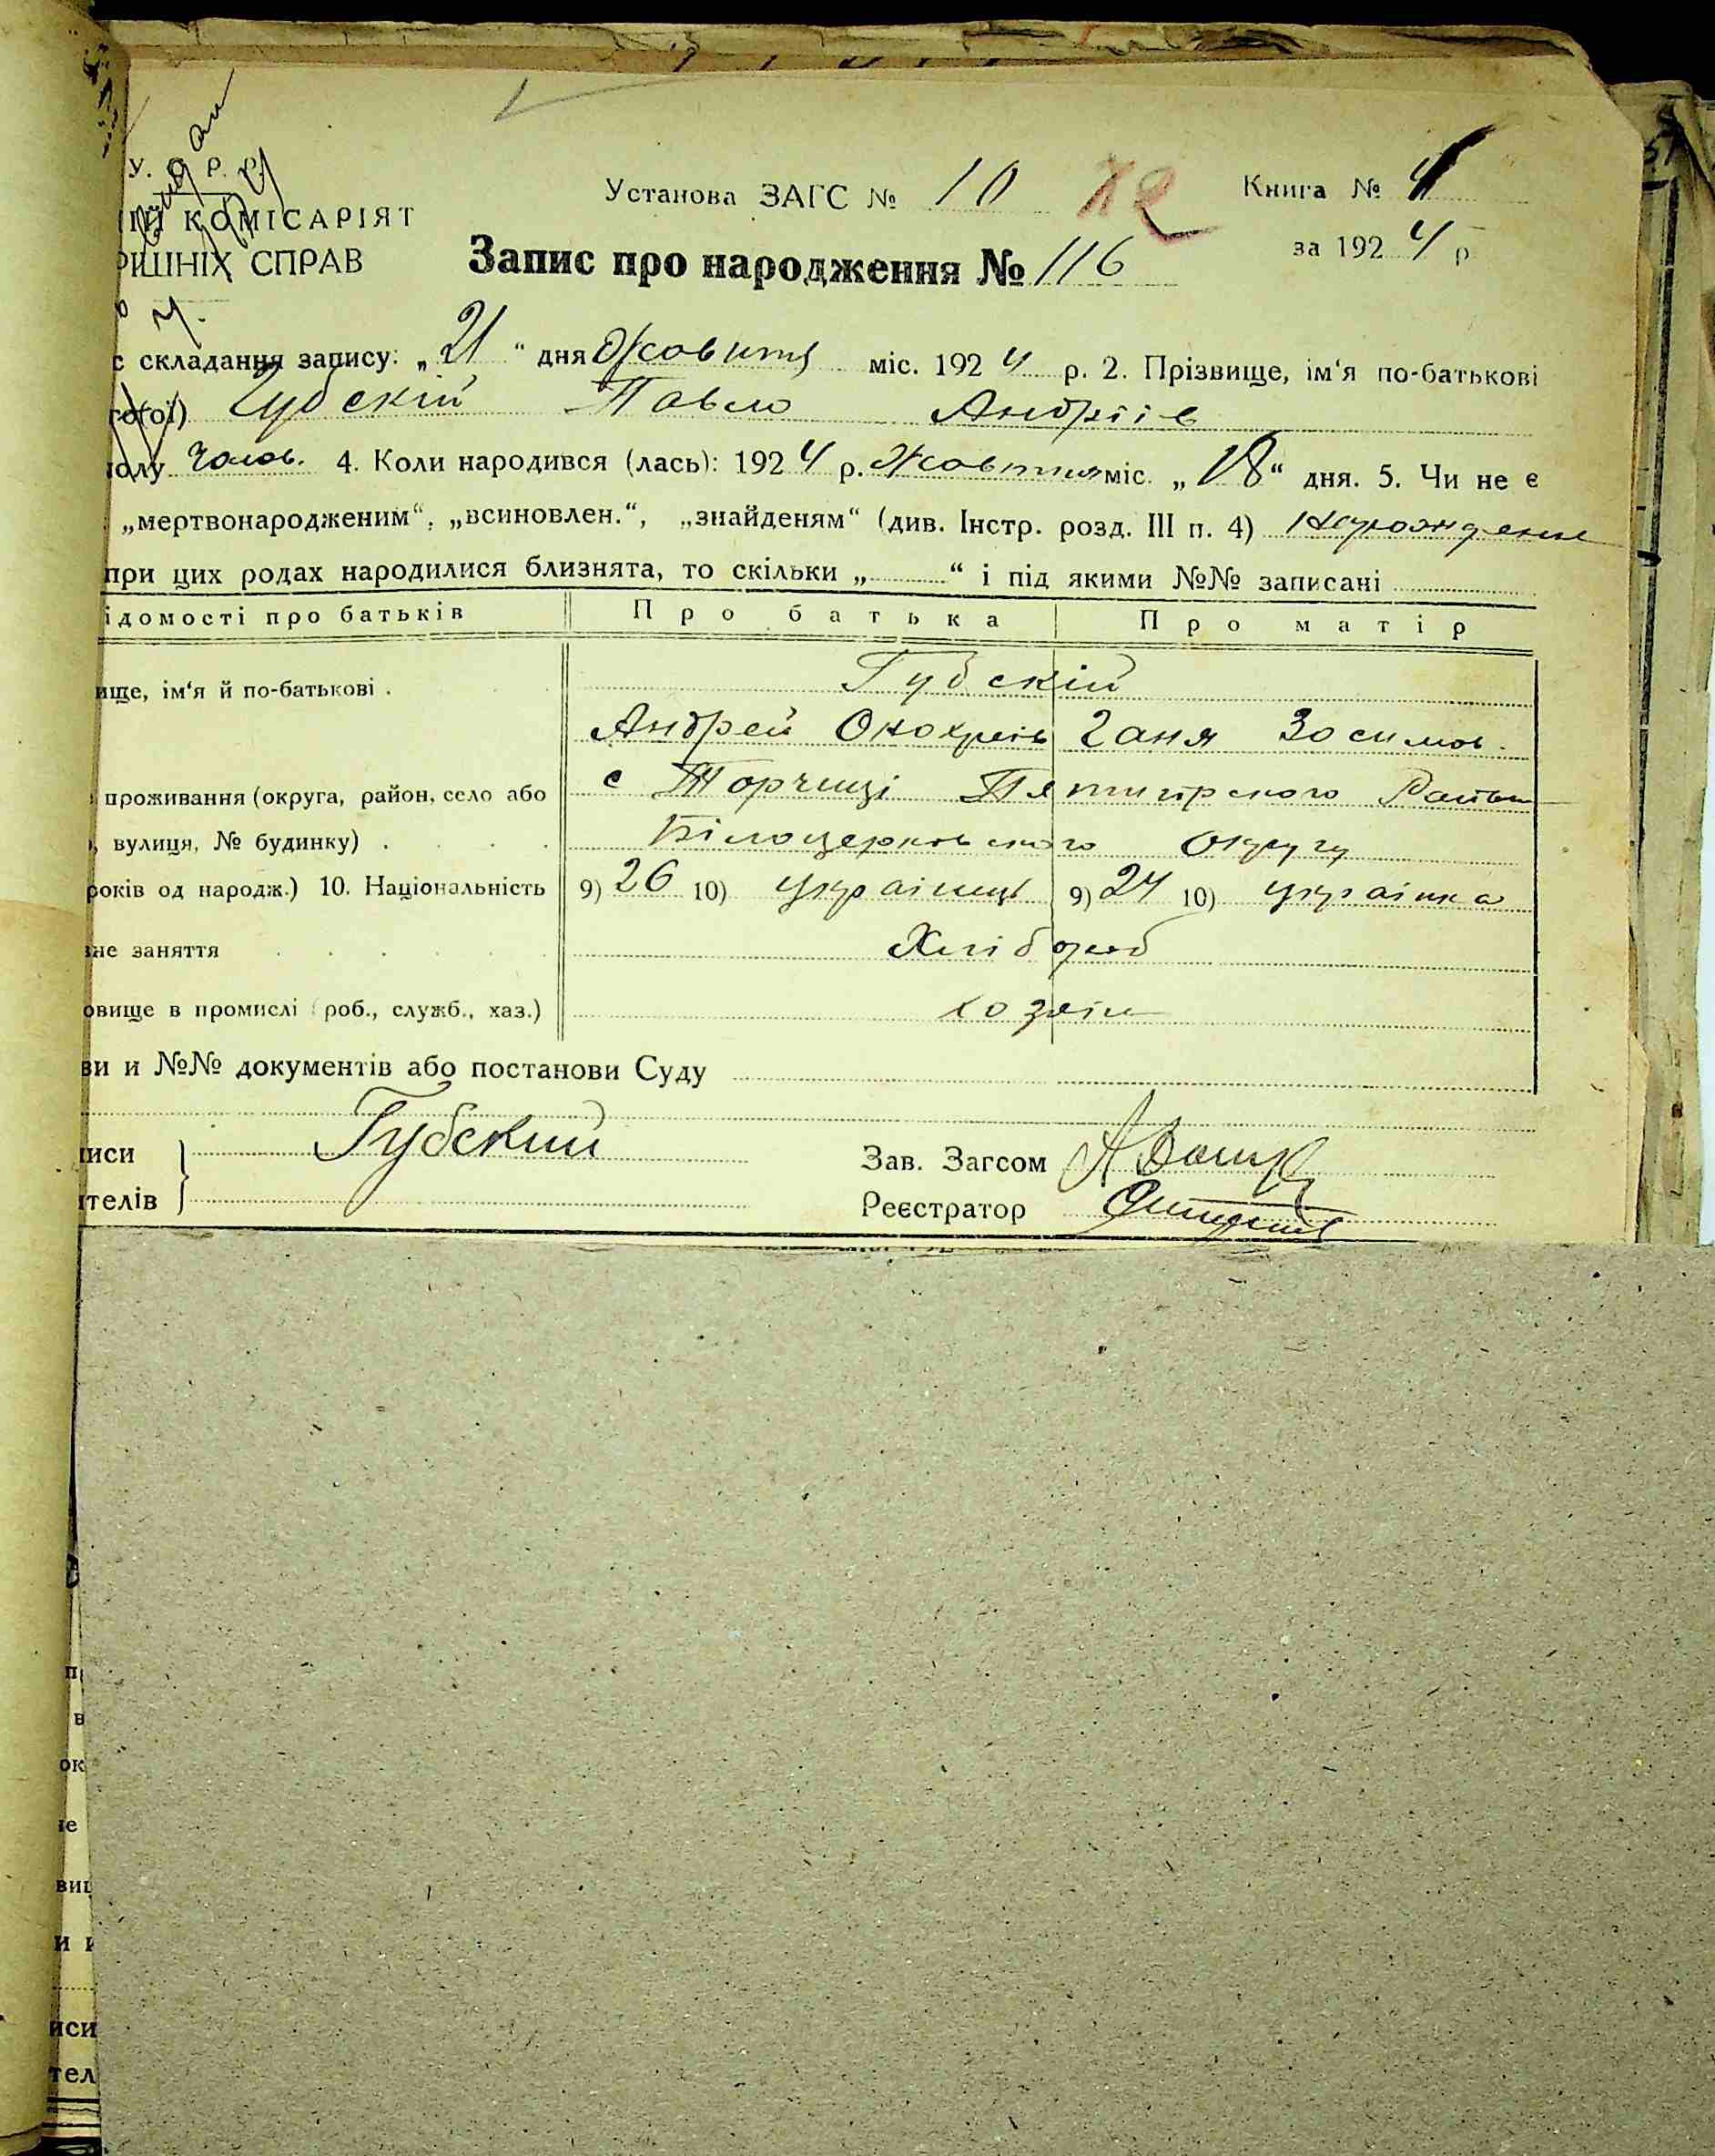 У. С. Р. Р.
Установа ЗАГС № 10 Книга № 4
КОМІСАРІЯТ
РІШНІХ СПРАВ
Запис про народження № 116 за 1924 р
с складання запису: „21“ дня Жовтня міс. 1924 р. 2. Прізвище, ім‘я по-батькові
го(ої) Губскій Павло Андріів
полу Чолов. 4. Коли народився (лась): 1924 р. Жовтня міс. „18“ дня. 5. Чи не є
„мертвонародженим“, „всиновлен.“, „знайденям“ (див. Інстр. розд. III п. 4)
при цих родах народилися близнята, то скільки „ “ і під якими №№ записані
ідомості про батьків Про батька Про матір
ище, ім‘я й по-батькові . Губскій
Андрей Ганя Зосимов.
проживання (округа, район, село або с Торчиці Пятигірского Району
, вулиця, № будинку) . Білоцерковського Округу
років од народж.) 10. Національність 9) 26 10) українец 9) 24 10) українка
не заняття Хлібороб
овище в промислі (роб., служб., хаз.) хозяін
ви и №№ документів або постанови Суду
иси Губский Зав. Загсом
ителів Реєстратор
п
в
ок
не
вищ
и и
иси
тел